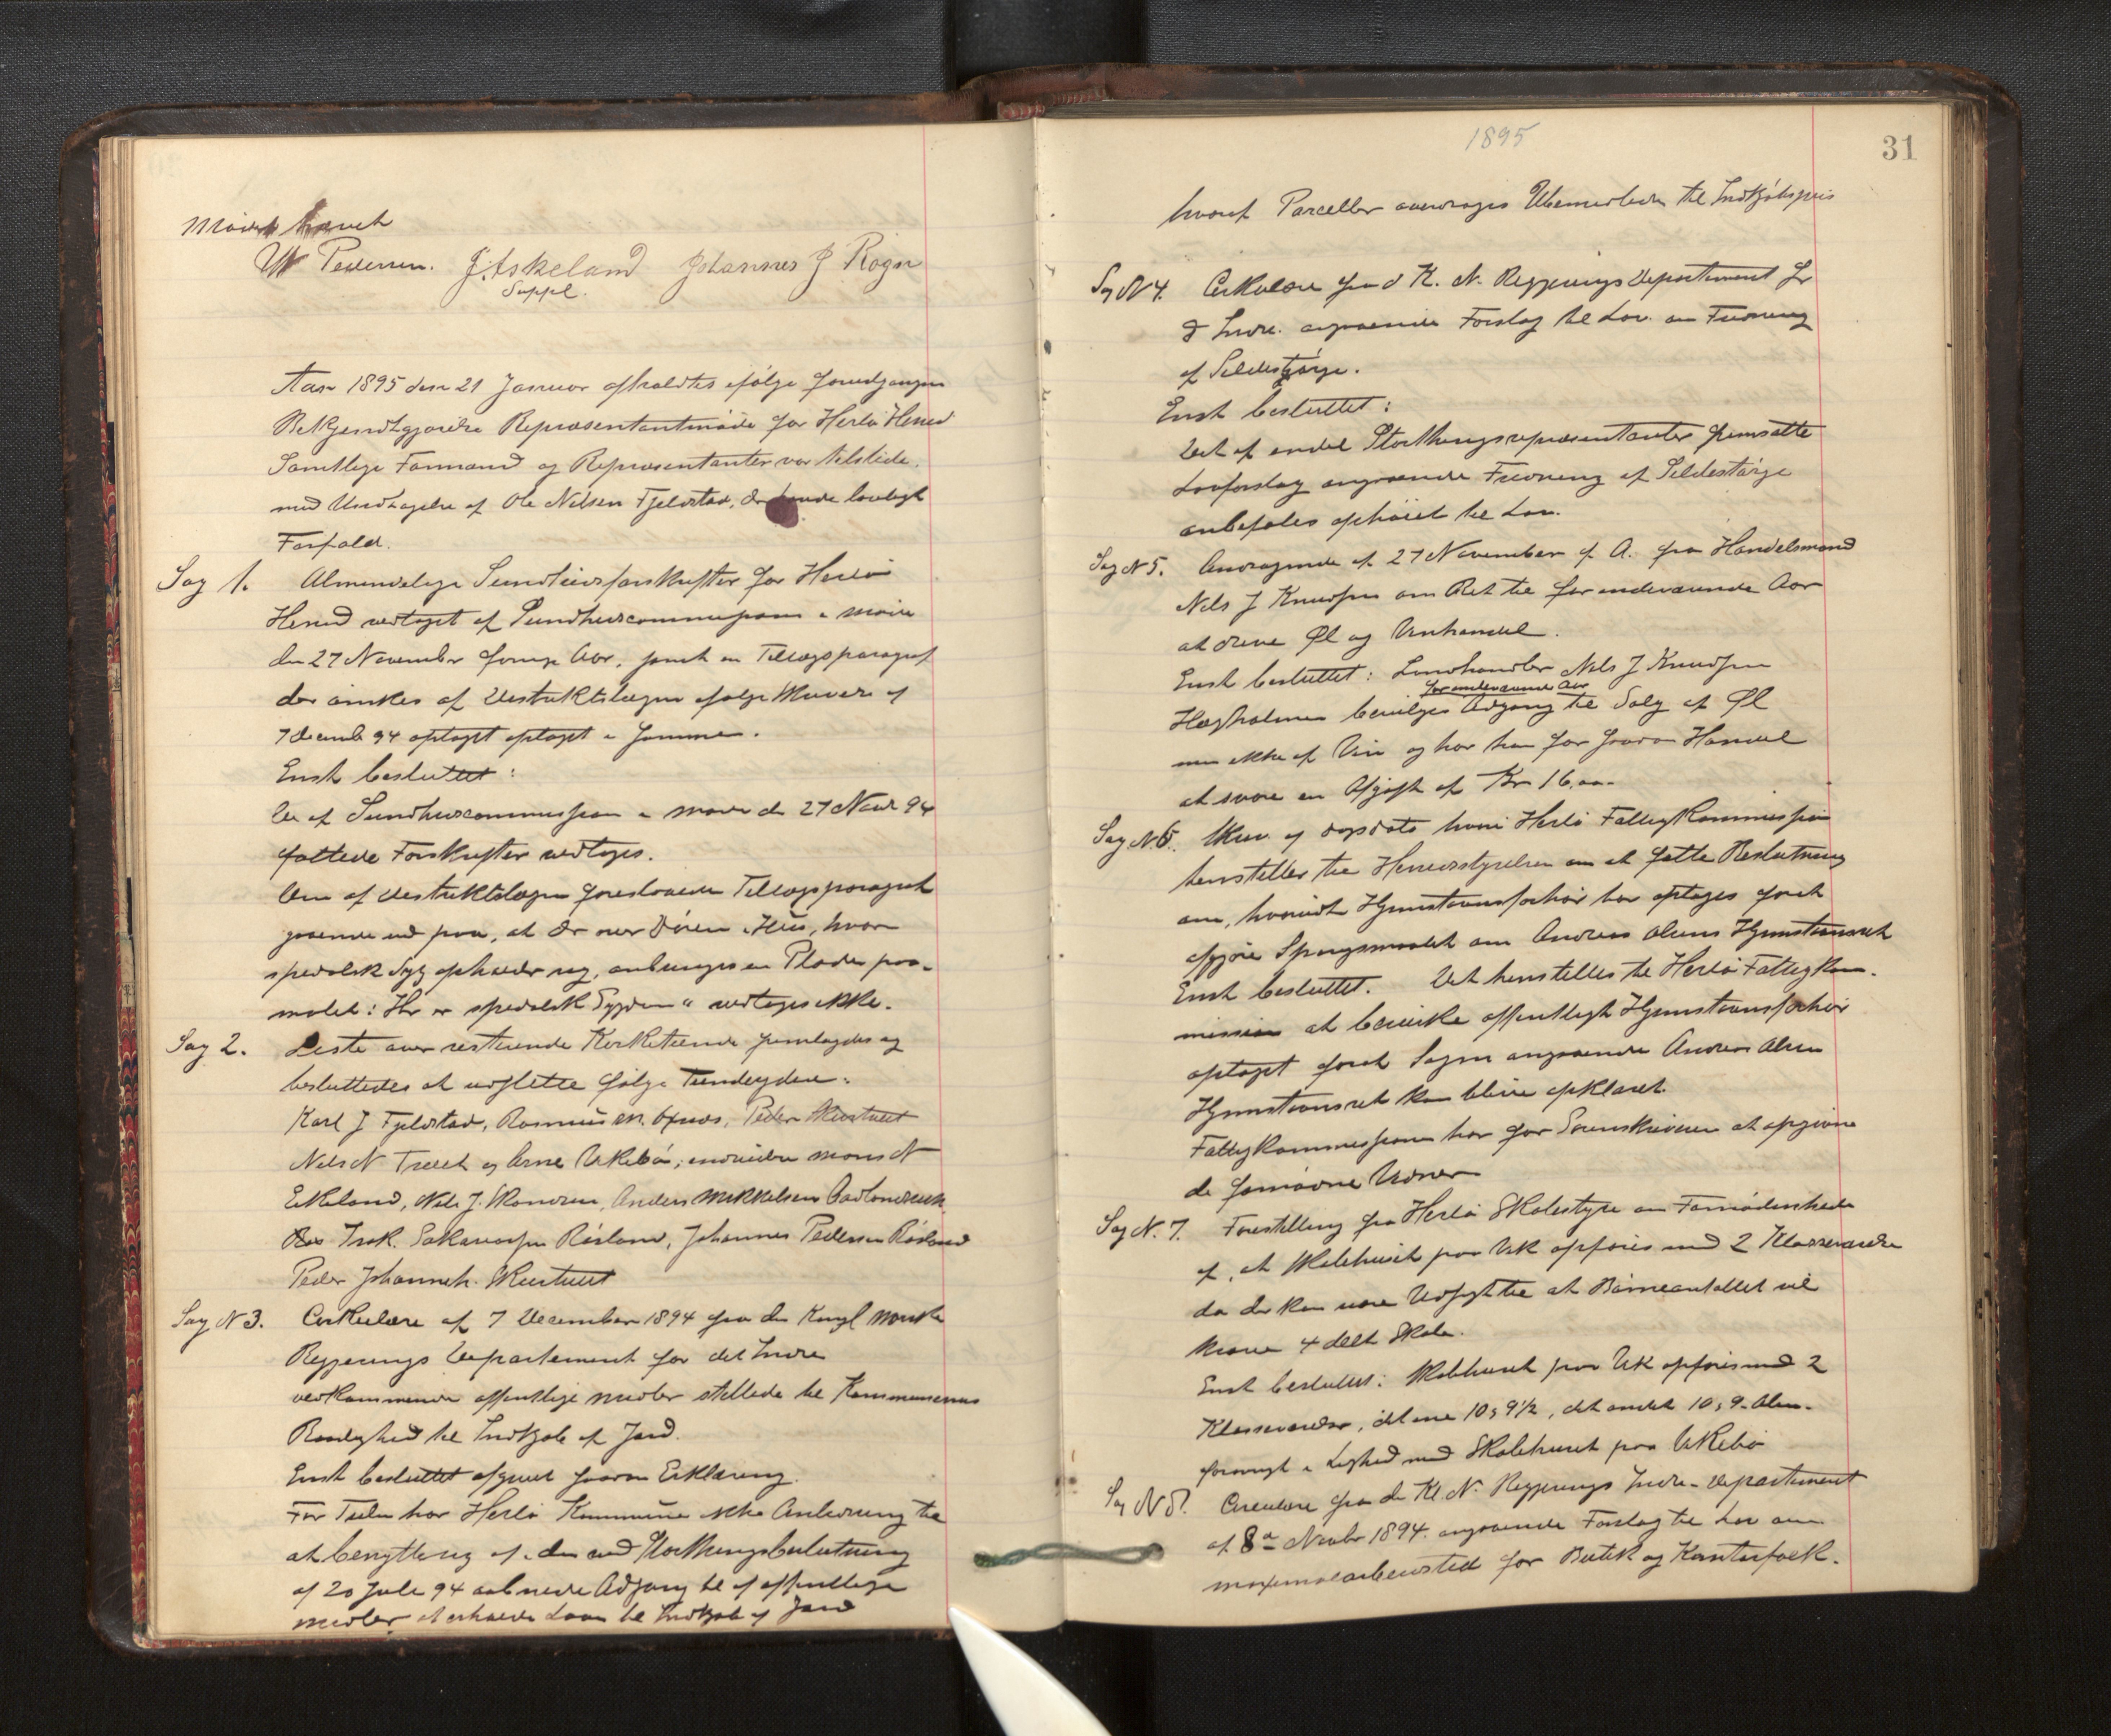 Mødet hævet
W Pedersen. J. Askeland Johannes J Rogn
Suppl.
Aar 1895 den 21 Januar afholdtes ifølge forudgangen
Bekjendtgjørelse Repræsentantmøde for Herlø Hered
Samtlige Formænd og Repræsentanter var tilstede.
med Undtagelse af Ole Nilsen Fjeldstad, der havde lovligt
Forfald.
Sag 1. Almindelige Sundhedsforskrifter for Herlø
Hered vedtaget af Sundhedscommissionen i møde
den 27 November forrige Aar, samt en Tillægsparagraf
der ønskes af Distriktslægen ifølge Skrivelse af
7 decemb 94 optaget optaget i samme.
Enst besluttet:
De af Sundhedscommissionen i møde d 27 Novb 94
fattede Forskrifter vedtages.
Den af Distriktslægen foreslaaede Tillægsparagraf
gaaende ud paa, at der over Døren i Hus, hvor
spedalsk Syg opholder sig, anbringes en Plade paa-
malet: Her er spedalsk Sygdom" vedtages ikke.
Sag 2. Liste over resterende Kirketiende fremlagdes og
besluttedes at udslette følge Tiendeydere:
Karl J Fjeldstad, Rasmus M. Oxnes, Peder Skurtveit
Nils N Tveit og Arne Ukebø; endvidere Mons N
Eikeland, Nils J. Skandsen, Anders Mikkelsen Aadlandsvik
Isak. Sakariassen Røsland, Johannes Pedersen Røsland
Peder Johannes. Skurtveit
Sag N 3. Cirkulære af 7 December 1894 fra den Kongl Norske
Regjerings Departement for det Indre
vedkommende offentlige midler stillede til Kommunernes
Raadighed til Indkjøb af Jord.
Enst besluttet afgivet saadan Erklæring.
For Tiden har Herlø Kommune ikke Anledning til
at benytte sig af den ved Storthingsbeslutning
af 20 Juli 94 aabnede Adgang til af offentlige
midler at erholde Laan til Indkjøb af Jord
1895
31
hvoraf Parceller overdrages Ubemidlede til Indkjøbspris
Sag N 4. Cirkulære fra d K. N. Regjerings Departement for
d Indre. angaaende Forslag til Lov om Fredning
af Seldestørje.
Enst besluttet:
Det af endel Storthingsrepræsentanter fremsatte
Lovforslag angaaende Fredning af Seldestørje
anbefales ophøiet til Lov.
Sag N 5. Andragende af 27 November f. A. fra Handelsmand
Nils J Knudsen om Ret til for indeværende Aar
at drive Øl og Vinhandel.
Enst besluttet: Landhandler Nils J Knudsen
for indeværende Aar
Hægholmen bevilges Adgang til Salg af Øl
men ikke af Vin og har han for saadan Handel
at svare en Afgift af Kr 16,00.
Sag N. 6. Skriv. af dagsdato hvori Herlø Fattigkommission
henstiller til Heredsstyrelsen om at fatte Beslutning
om, hvorvidt Hjemstavnsforhør bør optages forat
afgjøre Spørgsmaalet om Andreas Olsens Hjemstavnsret
Enst besluttet. Det henstilles til Herlø Fattigkom-
mission at bevirke offentligt Hjemstavnsforhør
optaget forat Sagen angaaende Andreas Olsen
Hjemstavnsret kan blive opklaret.
Fattigkommissionen har for Sorenskriveren at opgive
de fornødne Vidner
Sag N. 7. Forestilling fra Herlø Skolestyre om Fornødenheden
af, at Skolehuset paa Ask opføres med 2 Klasseværelser
da der kan være Udsigt til at Børneantallet vil
kræve 4 delt Skole.
Enst besluttet: Skolehuset paa Ask opføres med 2
Klasseværelser, det ene 10 x 9 1/2, det andet 10 x 9 Alen.
forøvrigt i Lighed med Skolehuset paa Ukebø
Sag N 8. Circulære fra den Kl N. Regjerings Indre-Departement
af 8de Novbr 1894. angaaende Forslag til Lov om
maximalarbeidstid for Butik og Kontorfolk.